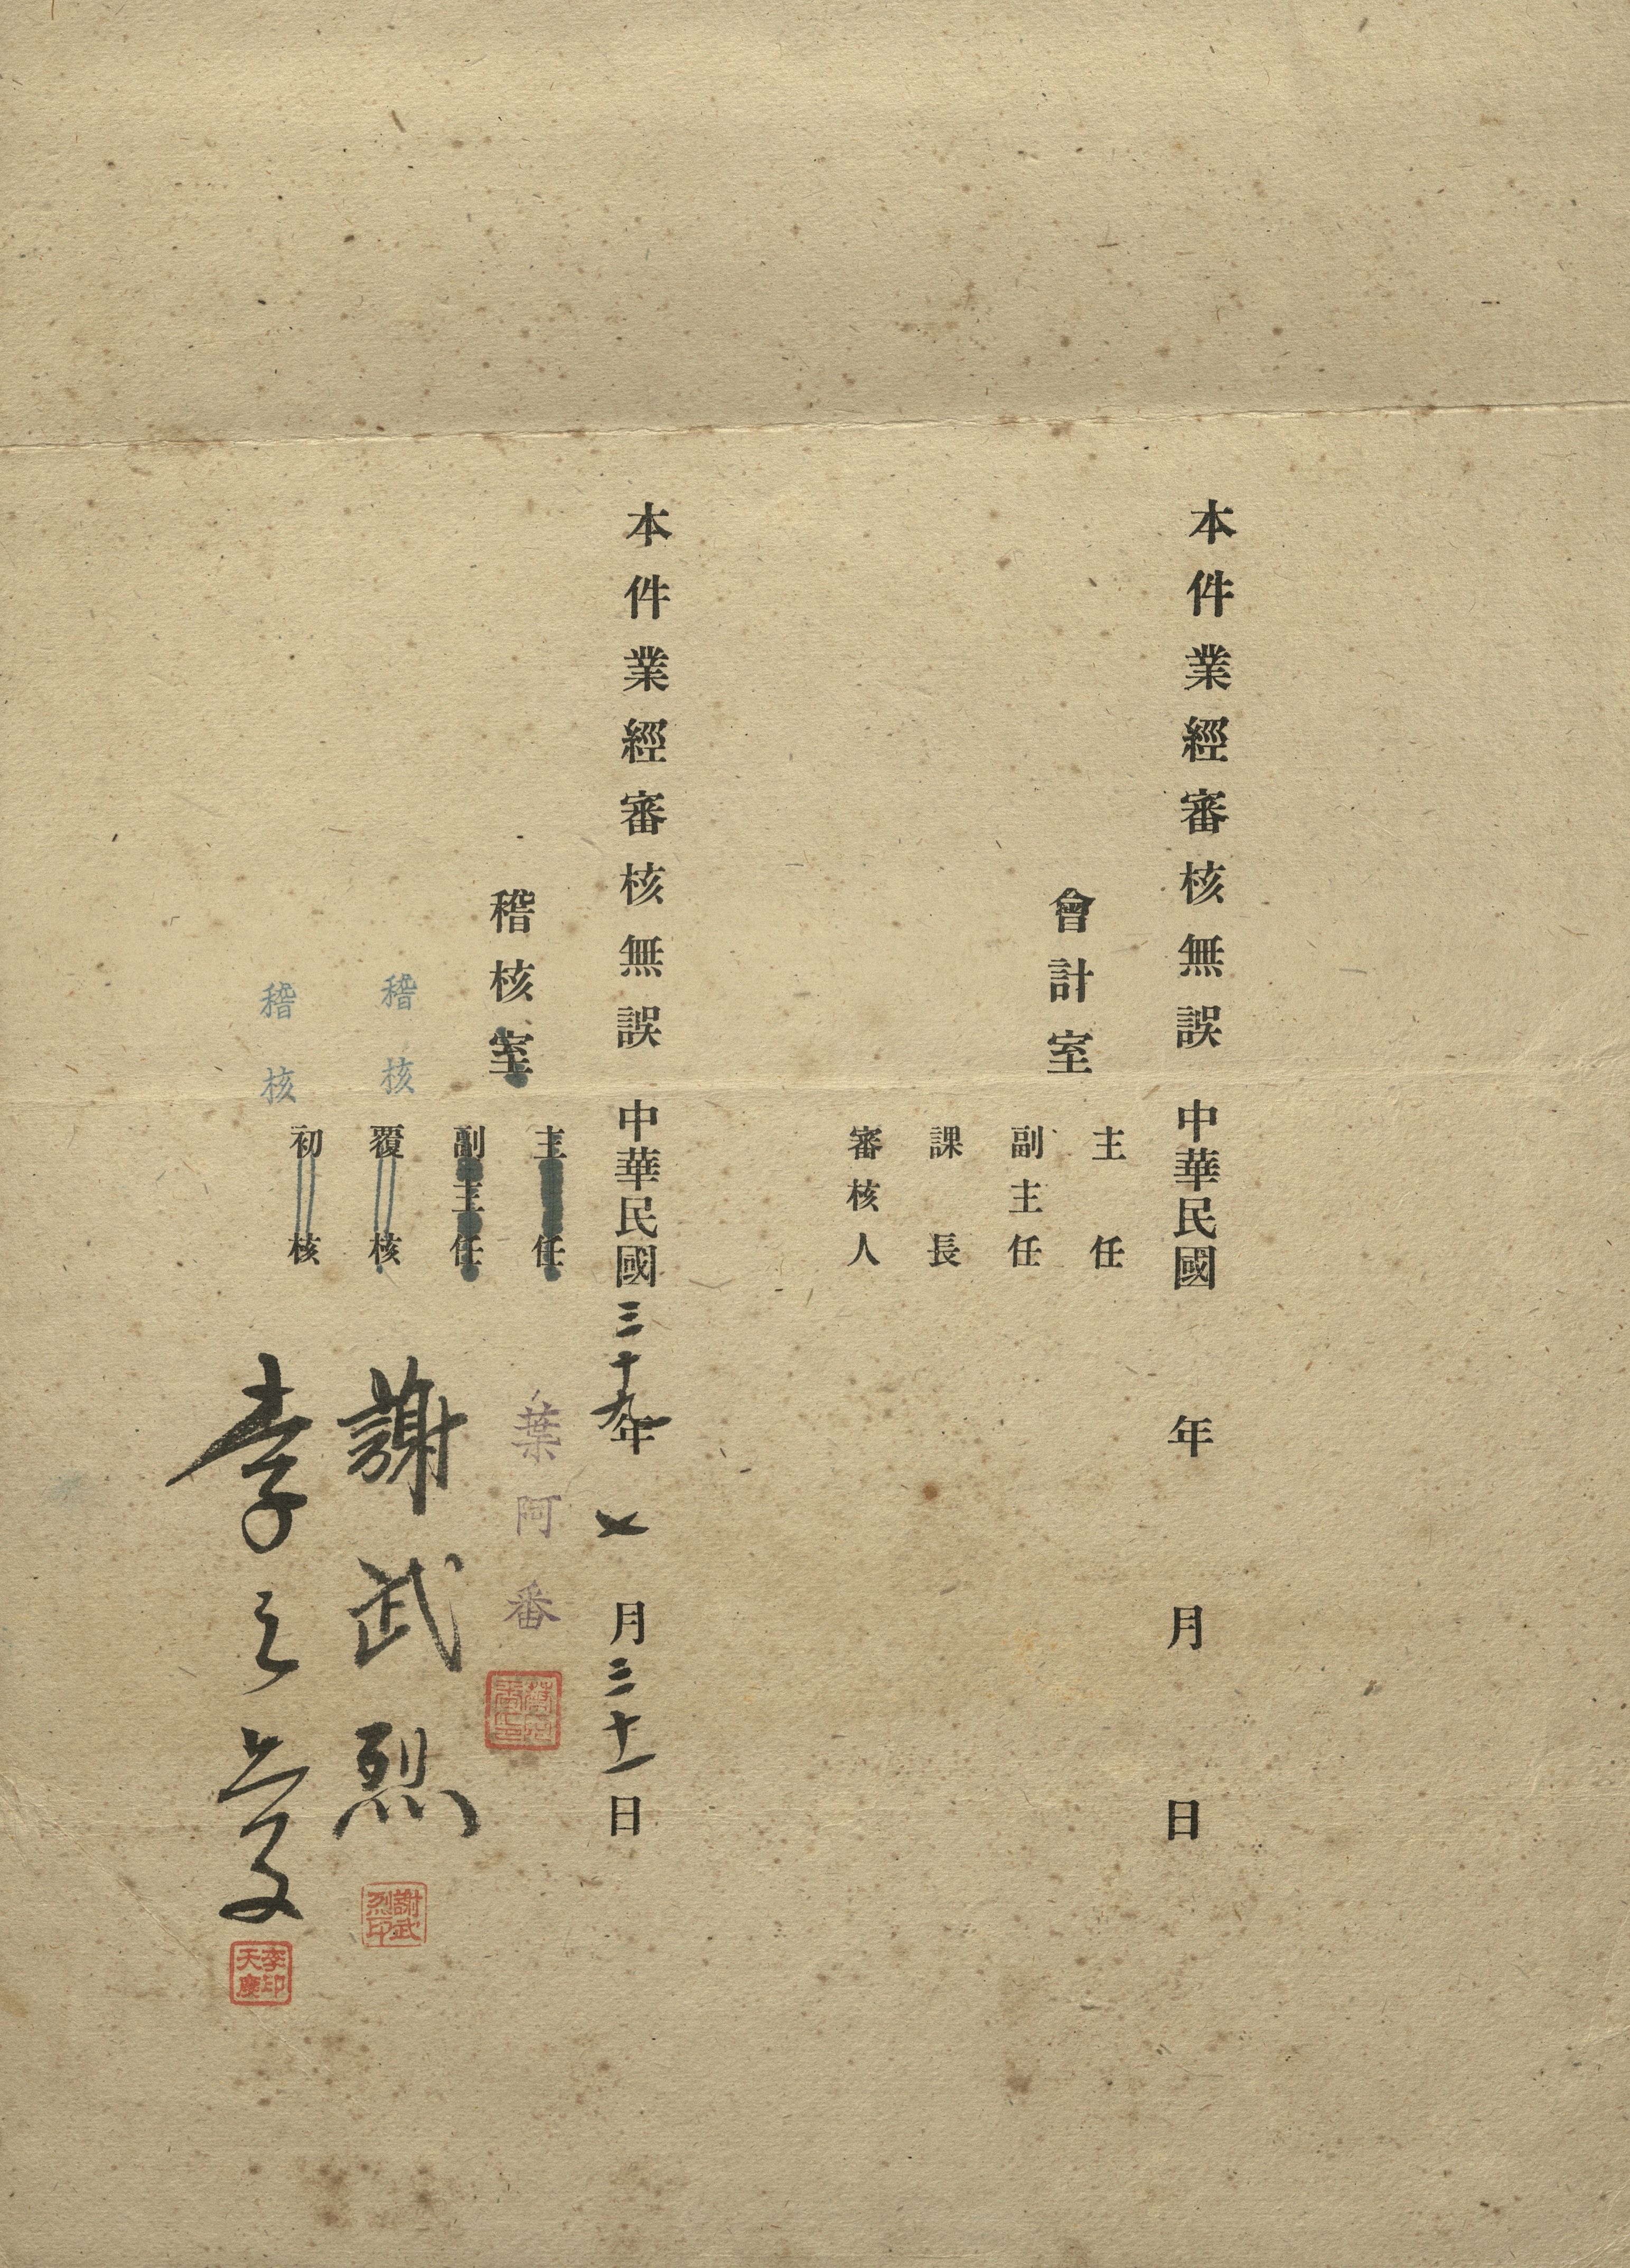 本件業經審核無誤 中華民國 年 月 日
會計室
主任
副主任
課長
審核人
本件業經審核無誤 中華民國三十九年七月三十一日
稽核室
主任
葉阿番
副主任
稽核
覆核
謝武烈
謝武烈印
稽核
初核
李天慶
李印天慶